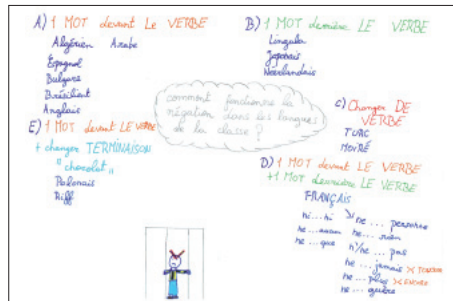 A) 1 MOT devant LE VERBE
Algérien Arabe
Espagnol
Bulgare
Brésilien
Anglais
B) 1 MOT derrière LE VERBE
Lingala
Japonais
Néerlandais
comment fonctionne la
négation dans les langues
de la classe ?
C) Changer DE
VERBE
TURC
MOIRÉ
E) 1 MOT devant LE VERBE
+ changer TERMINAISON
"chocolat"
Polonais
Riff
D) 1 MOT devant LE VERBE
+ 1 MOT derrière LE VERBE
FRANÇAIS
ni...ni ne... personne
ne...aucun ne... rien
ne...que n'/ne ... pas
ne ... jamais
ne ... plus >< ENCORE
ne ... guère